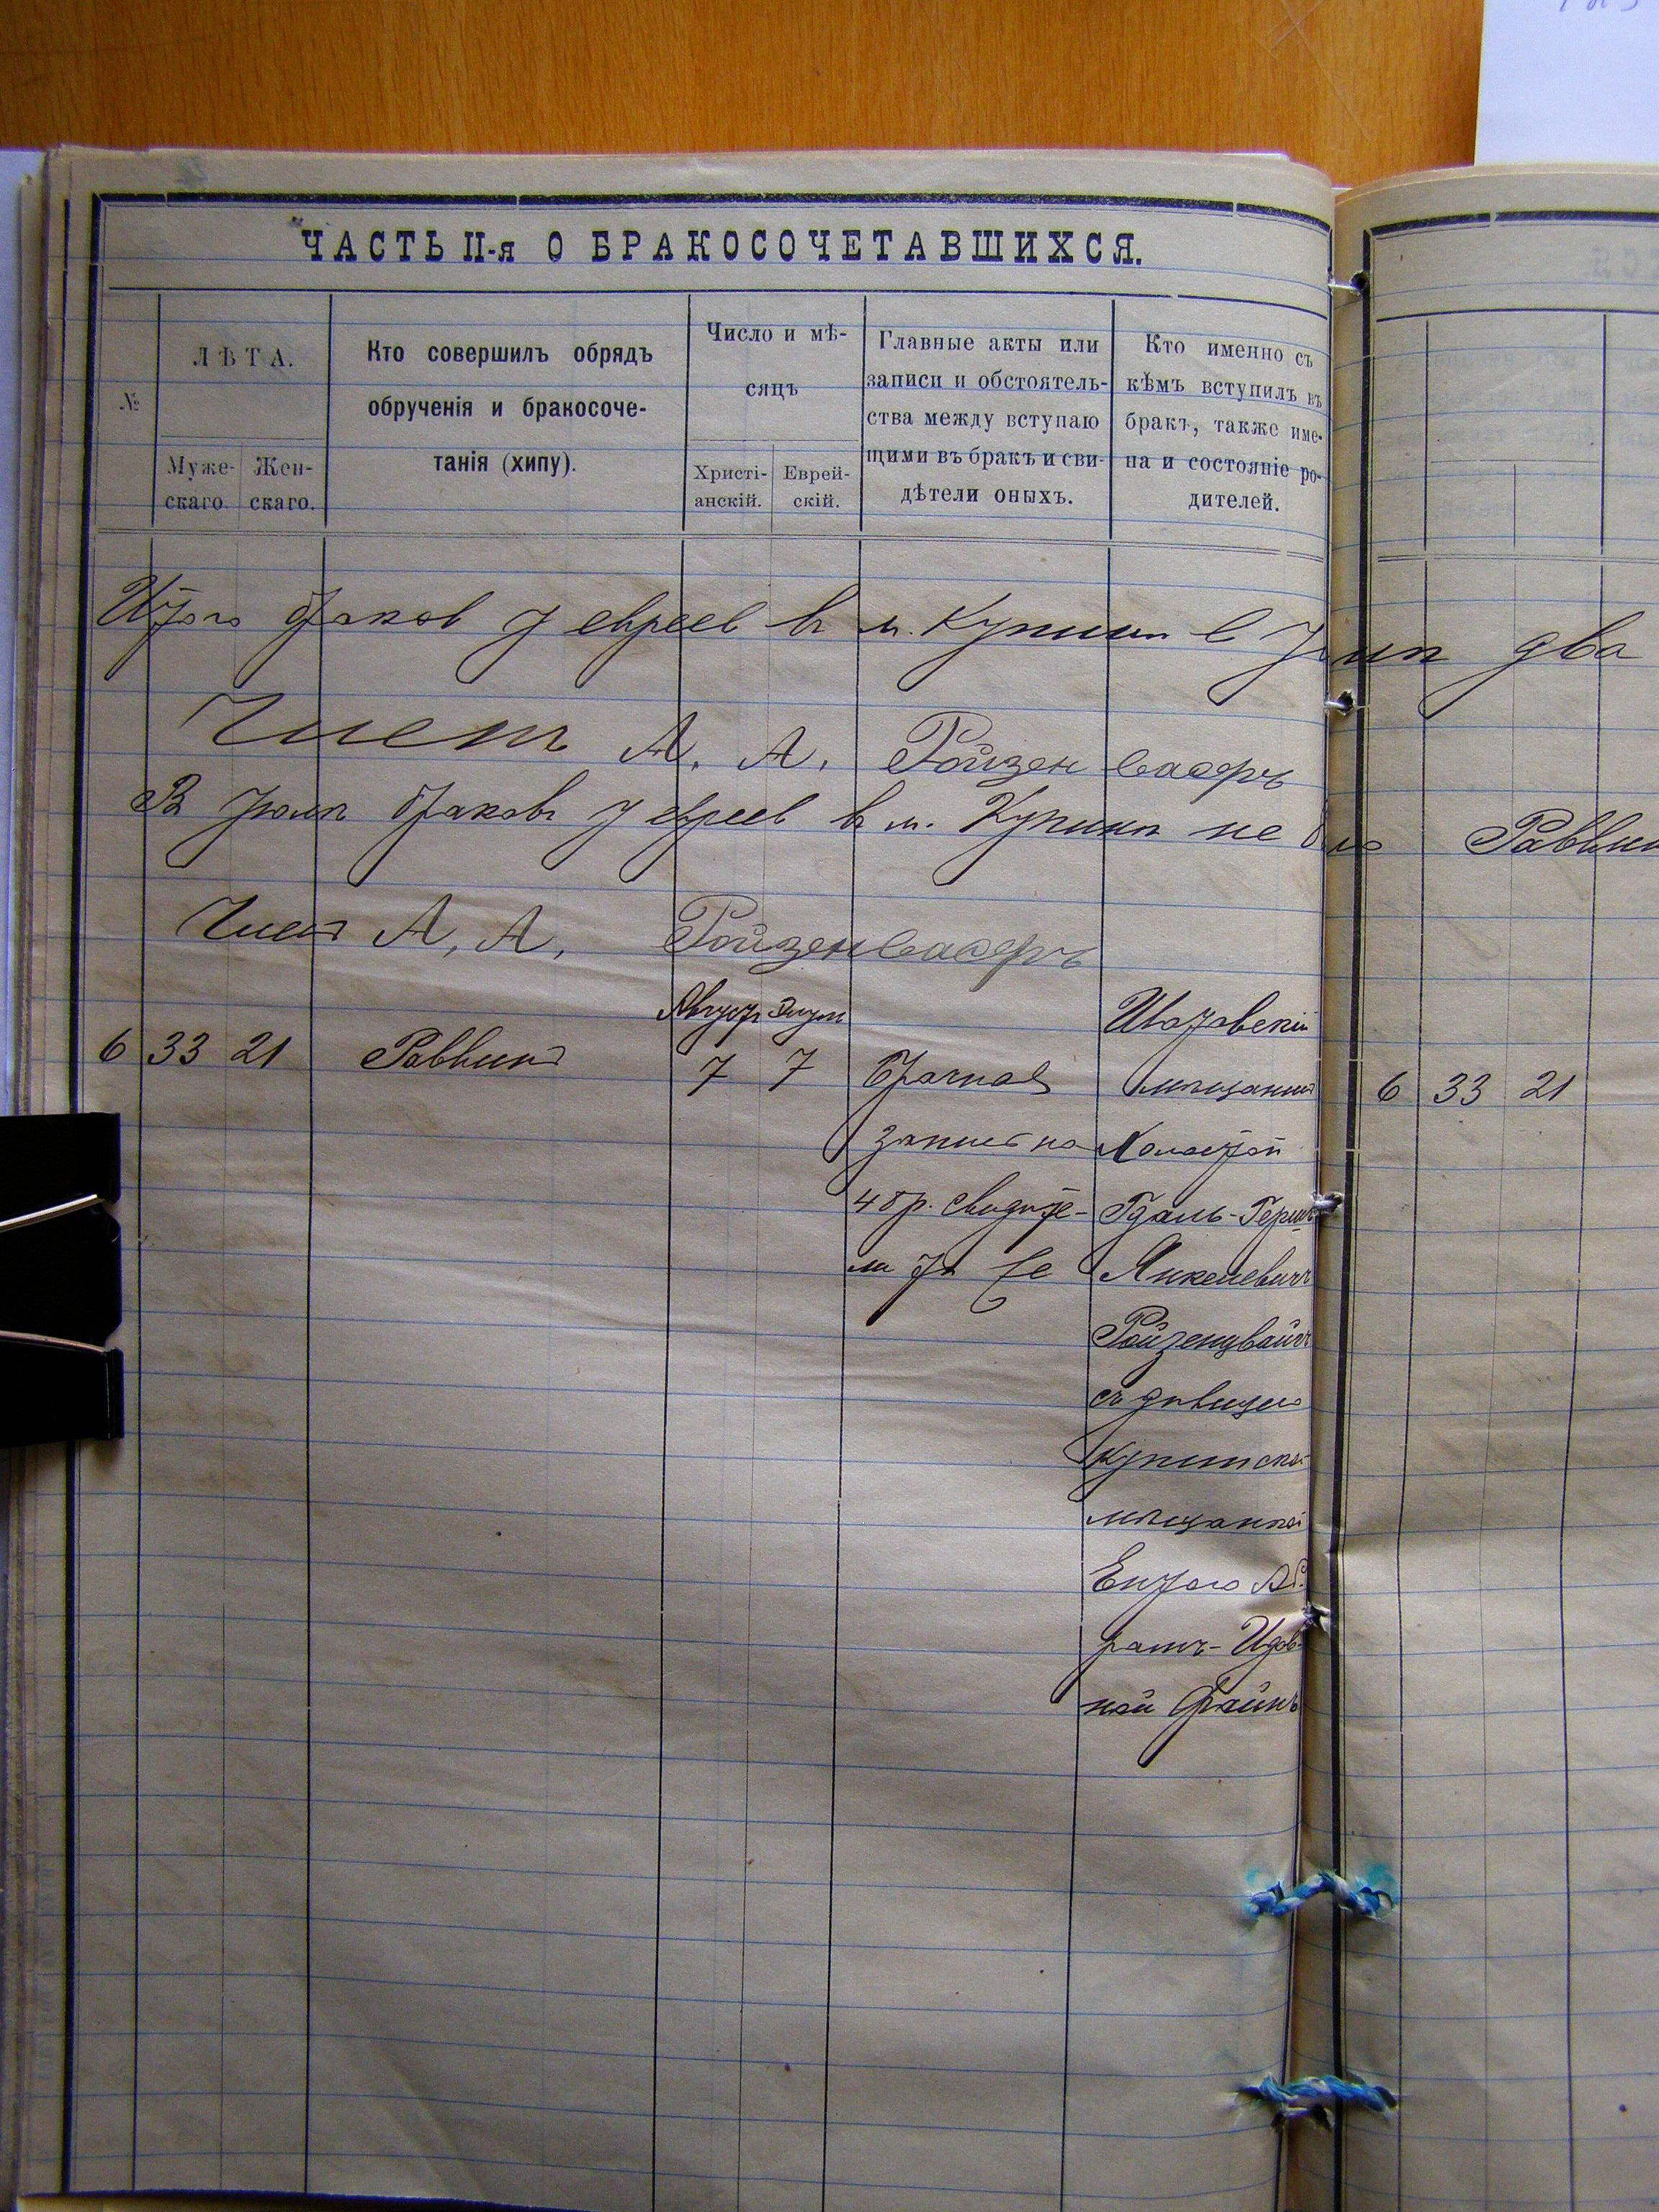 ЧАСТЬ II-я О БРАКОСОЧЕТАВШИХСЯ.
№
ЛѢТА.
Муже-
скаго.
Жен-
скаго.
Кто совершилъ обрядъ
обрученія и бракосоче-
танія (хипу).
Число и мѣ-
сяцъ
Христі-
анскій.
Еврей-
скій.
Главные акты или
записи и обстоятель-
ства между вступаю
щими въ бракъ и сви-
дѣтели оныхъ.
Кто именно съ
кѣмъ вступилъ въ
бракъ, также име-
на и состояніе ро-
дителей.
Итого браков у евреев въ м. Купинѣ в два
Членъ А. А. Ройзенвасеръ
В браковъ у евреев въ м. Купинѣ не Раввин
Членъ А. А. Ройзенвасеръ
Августъ Элулъ
6 33 21 Раввинъ 7 7
Брачная
запись на
48 р. свидѣте-
ли тѣ же
мѣщанинъ
Холостой
Гдаль-Гершъ
Янкелевичъ
Ройзенцвайгъ
съ дѣвицею
Купинской
мѣщанкой
рамъ-
ной Файнъ
6 33 21